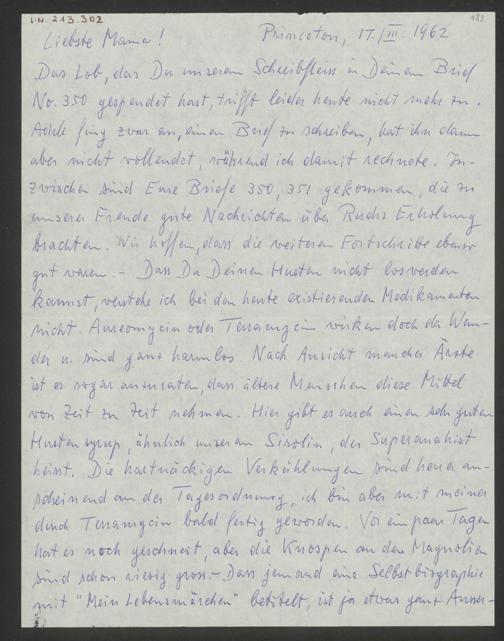 I.N. 213.302
189
Liebste Mama! Princeton, 17./III. 1962
Das Lob, das Du unserem Schreibfleiss in Deinem Brief
No. 350 gespendet hast, trifft leider heute nicht mehr zu.
Adele fing zwar an, einen Brief zu schreiben, hat ihn dann
aber nicht vollendet, während ich damit rechnete. In-
zwischen sind Eure Briefe 350, 351 gekommen, die zu
unserer Freude gute Nachrichten über Rudis Erholung
brachten. Wir hoffen, dass die weiteren Fortschritte ebenso
gut waren. – Dass Du Deinen Husten nicht loswerden
kannst, verstehe ich bei den heute existierenden Medikamenten
nicht. Aureomycin oder Terramycin wirken doch da Wun-
der u. sind ganz harmlos. Nach Ansicht mancher Ärzte
ist es sogar anzuraten, dass ältere Menschen diese Mittel
von Zeit zu Zeit nehmen. Hier gibt es auch einen sehr guten
Hustensyrup, ähnlich unserem Sirolin, der Superanahist
heisst. Die hartnäckigen Verkühlungen sind heuer an-
scheinend an der Tagesordnung, ich bin aber mit meiner
durch Terramycin bald fertig geworden. Vor ein paar Tagen
hat es noch geschneit, aber die Knospen an den Magnolien
sind schon riesig gross. – Dass jemand eine Selbstbiographie
mit "Mein Lebensmärchen" betitelt, ist ja etwas ganz Ausser-